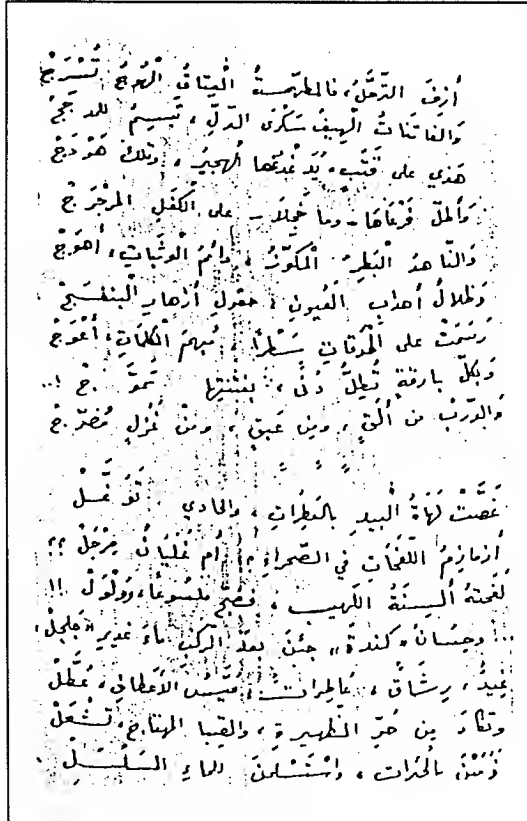 أَزِفَ التَّرَحُّلُ، فالمطهَّمةُ الْعِتاقُ الْهُوجُ تُسْرَجْ
وَالفاتناتُ الْهِيفُ سَكْرَى الدَّلِّ، تَبْسِمُ
هَذي على قَتَبٍ، يُدَغْدِغُها الْهجيرُ، وتلكَ هَوْدَجْ
على الْكَفَلِ المرَجْرَجْ
وَالنّاهدُ الْبَطِرُ الْمكوَّرُ، دائمُ الْوَثَباتِ، أَهوَجْ
وَظلالُ أهدابِ العُيونِ، حقولُ أزهارِ الْبنفسَجْ
رَسَمَتْ على الْحَدَقاتِ سَطْرًا، مُبهمَ الْكلماتِ، أَعْوَجْ
وَبكلِّ بارقةٍ تُطِلُّ دُنًى، بفتنتِها تموَّجْ !..
وَالدّربُ من أَلَقٍ، ومِن عَبقٍ، ومنْ غَزَلٍ مُضرَّجْ
غَصَّتْ لَهَاةُ الْبيدِ بالخَطَراتِ، والحادي تَوَغَّلْ
أزمازِمُ اللّفَحاتِ في الصّحراءِ ؟! أم غَلَيانُ مِرْجَلْ ؟؟
لَفَحتهُ أَلْسِنَةُ اللّهيبِ، فضجَّ ملسُوعًا، وَوَلْوَلْ !!
.. وحِسَانُ « كندةَ » جِئنَ بعدَ الرّكبِ ماءَ غديرِ « جَلجلْ »
غِيدٌ، رِشَاقٌ، عَاطِراتٌ، مُيَّسُ الأعطافِ، عُطَّلْ
وتكادُ مِن حَرِّ الظّهيرةِ، والصِّبا المهتاجِ، تُشْعَلْ
وَاسْتَسْلمنَ للماءِ السَّلْسَلْ